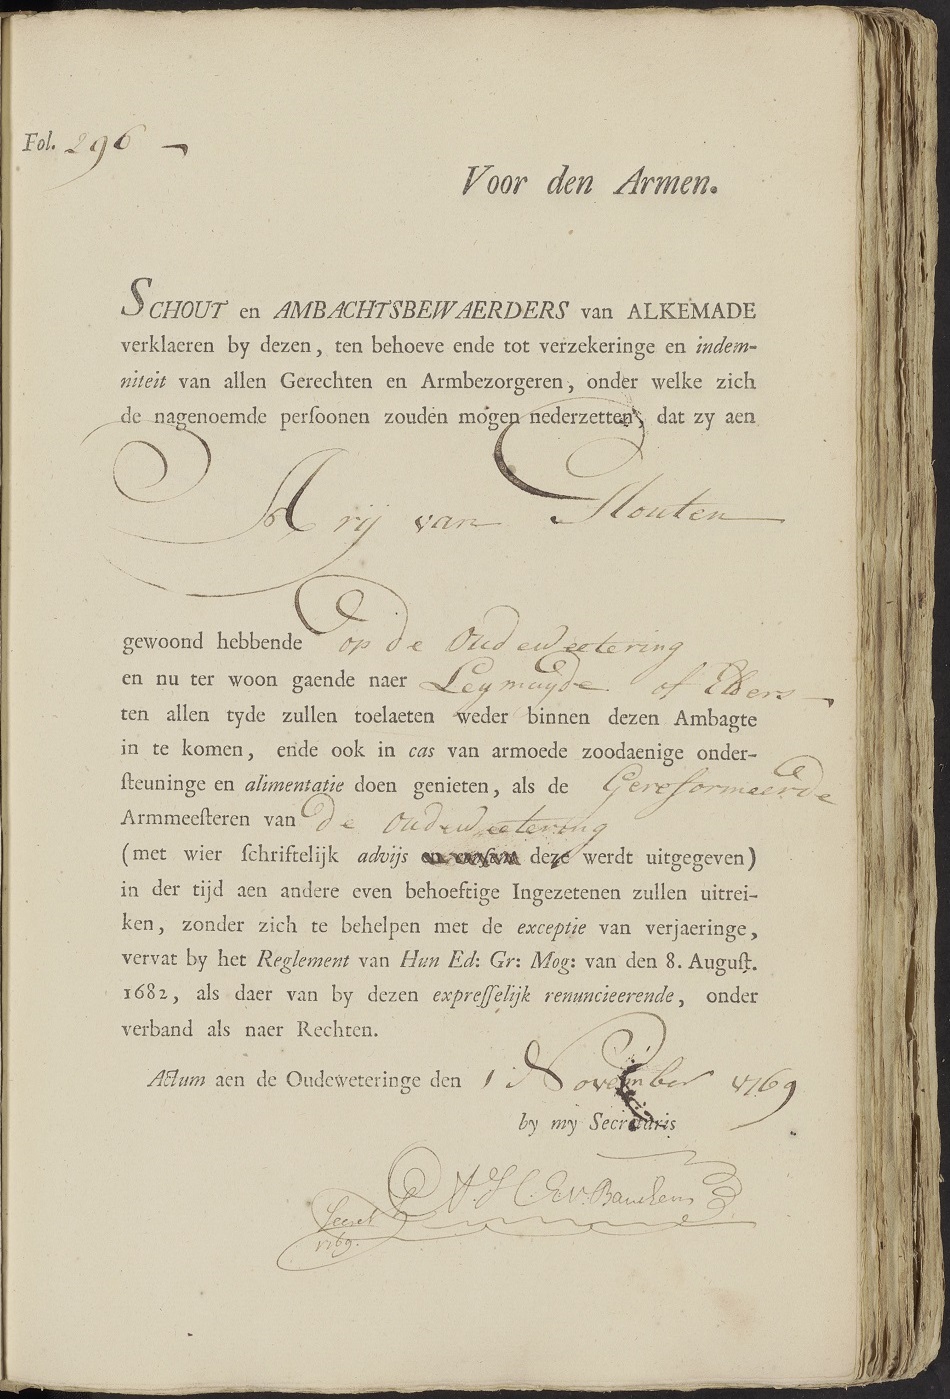 Fol. 296
Voor den Armen.
SCHOUT en AMBACHTSBEWAERDERS van ALKEMADE
verklaeren by dezen, ten behoeve ende tot verzekeringe en indem-
niteit van allen Gerechten en Armbezorgeren, onder welke zich
de nagenoemde perſoonen zouden mogen nederzetten, dat zy aen
Arij van Houten
gewoond hebbende op de Oudeweetering
en nu ter woon gaende naer Leymuyde of Elders
ten allen tyde zullen toelaeten weder binnen dezen Ambagte
in te komen, ende ook in cas van armoede zoodaenige onder-
ſteuninge en alimentatie doen genieten, als de Gereformeerde
Armmeeſteren van de Oudeweetering
(met wier ſchriftelijk advijs deze werdt uitgegeven)
in der tijd aen andere even behoeftige Ingezetenen zullen uitrei-
ken, zonder zich te behelpen met de exceptie van verjaeringe,
vervat by het Reglement van Hun Ed: Gr: Mog: van den 8. Auguſt.
1682, als daer van by dezen expreſſelijk renuncieerende, onder
verband als naer Rechten.
Actum aen de Oudeweteringe den 1 November 1769
by my Secretaris
Secret
1769.